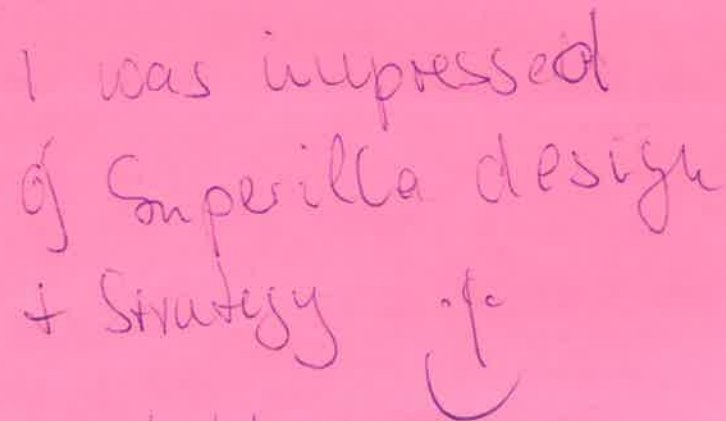 I was impressed
of Superilla design
+ Strategy